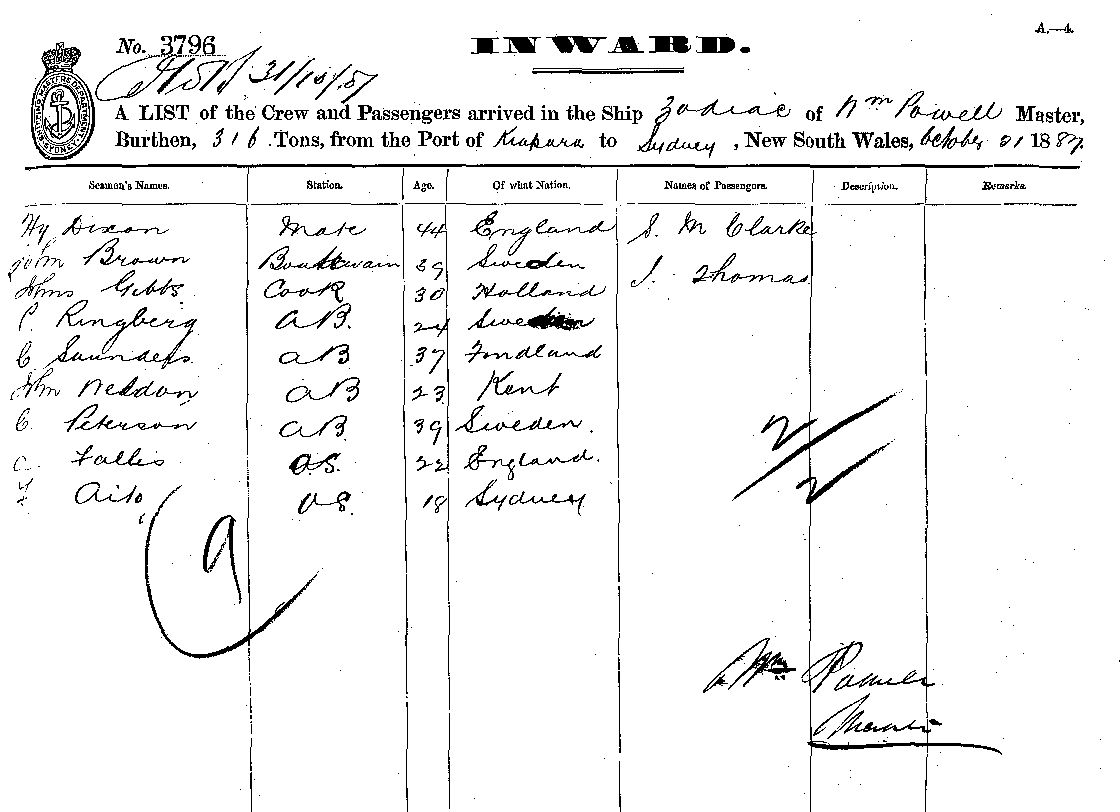 A.—4.
No. 3796
INWARD.
31/10/87
A LIST of the Crew and Passengers arrived in the Ship Zodiac of Wm Powell Master,
Burthen, 316 Tons, from the Port of Kaipara to Sydney, New South Wales, October 31 1887.
Seamen's Names. Station. Age. Of what Nation. Names of Passengers. Description. Remarks.
Hy Dixon Mate 44 England S. M Clarke
John Brown Boatswain 39 Sweden
J. Thomas
Jhms Gibbs Cook 30 Holland
C. Ringberg AB. 24 Sweden
C Saunders AB 37 Findland
Jhm Neddon AB 23 Kent
C. Peterson AB. 39 Sweden.
C. Fallis O.S. 22 England.
Aito OS. 18 Sydney
2/2
9
Wm Powell
Master